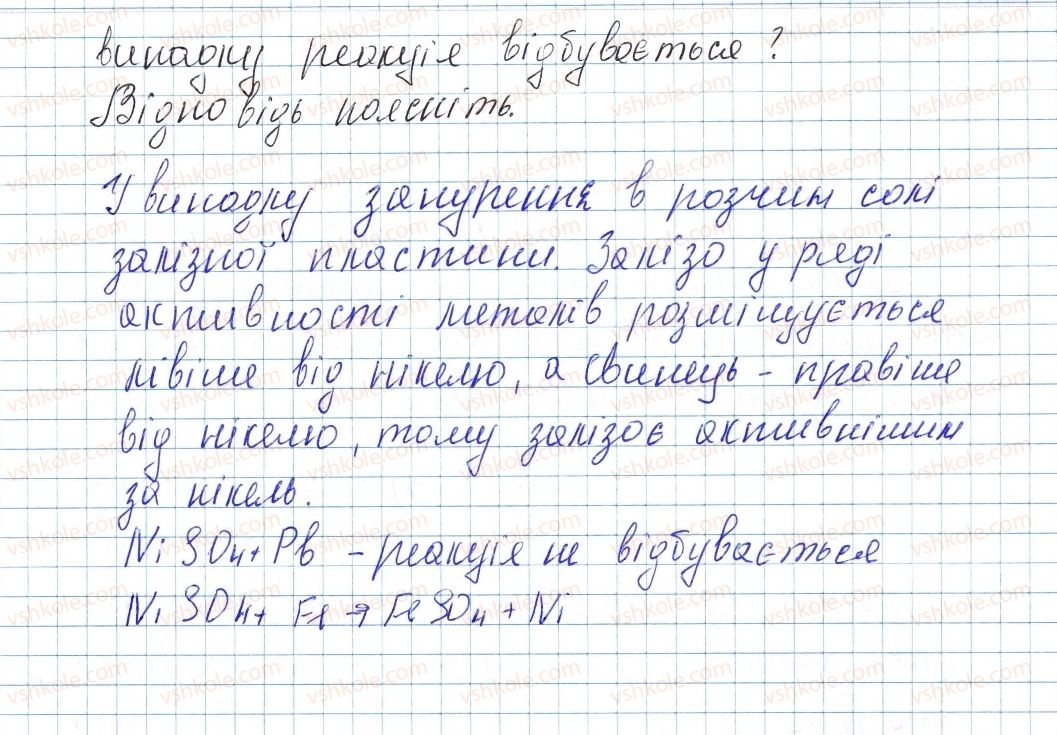 випадку реакція відбувається?
Відповідь поясніть.
У випадку занурення в розчин солі
залізної пластини. Залізо у ряді
активності металів розміщується
лівіше від нікелю, а свинець - правіше
від нікелю, тому залізо є активнішим
за нікель.
NiSO4 + Pb - реакція не відбувається
NiSO4 + Fe → FeSO4 + Ni